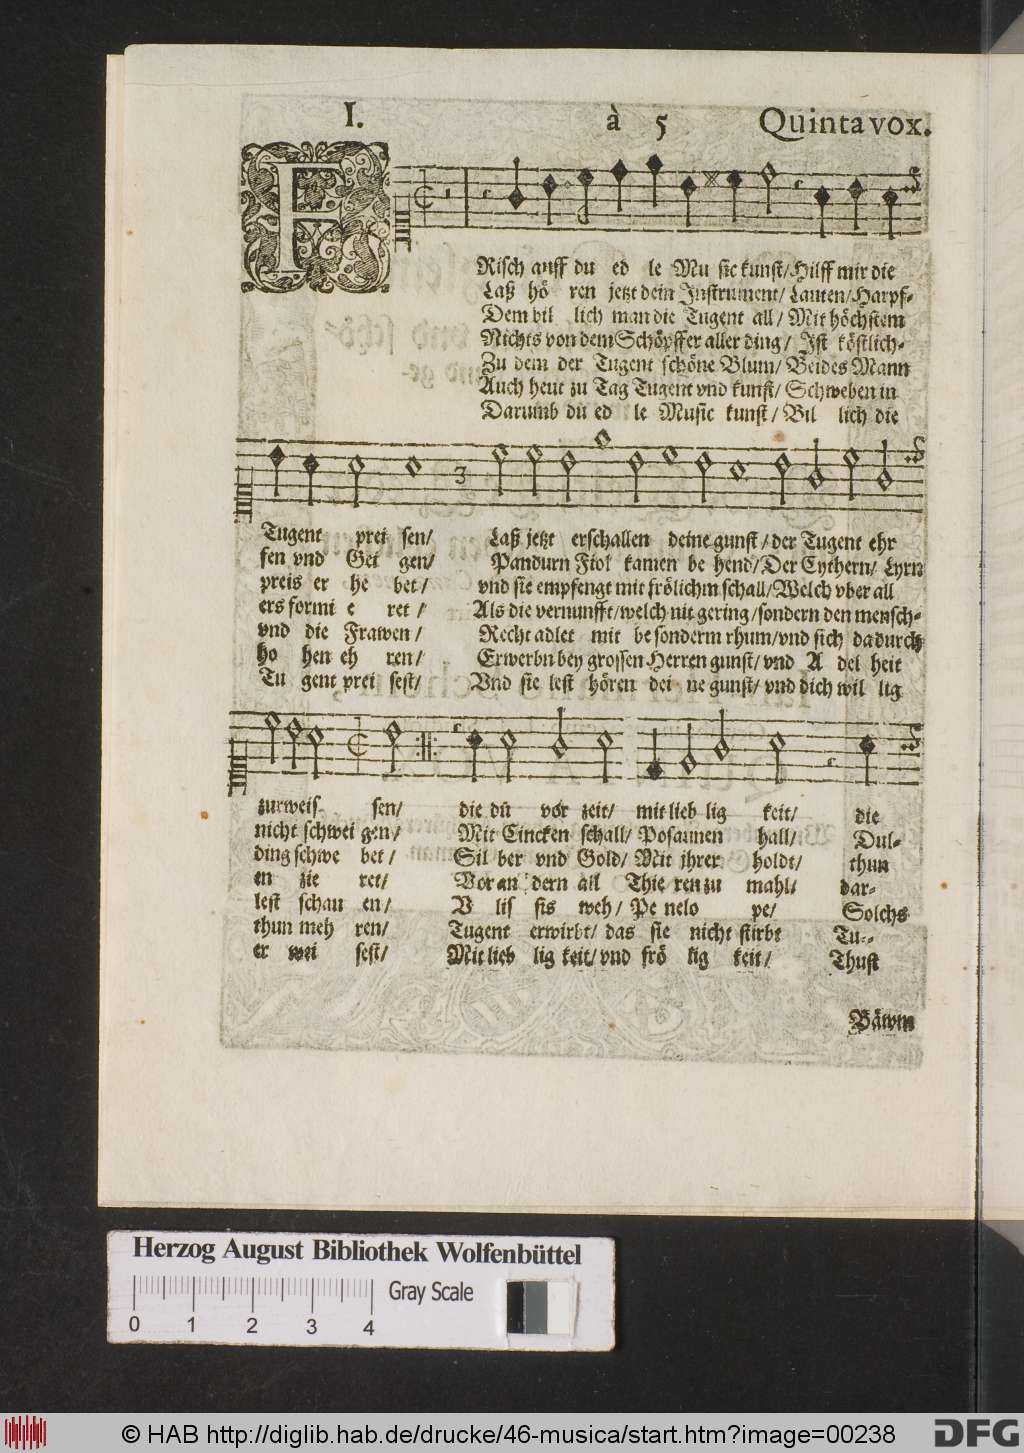 I. à 5 Quinta vox.
F
Risch auff du ed le Mu sic kunst/ Hilff mir die
Laß hö ren jetzt dein Instrument/ Lauten/ Harpf-
Dem bil lich man die Tugent all/ Mit höchstem
Nichts von dem Schöpffer aller ding/ Ist köstlich-
Zu dem der Tugent schöne Blum/ Beides Mann
Auch heut zu Tag Tugent vnd kunst/ Schweben in
Darumb du ed le Music kunst/ Bil lich die
3
Tugent prei sen/ Laß jetzt erschallen deine gunst/ der Tugent ehr
fen vnd Gei gen/ Pandurn Fiol kamen be hend/ Der Cythern/ Lyrn
preis er he bet/ vnd sie empfengt mit frölichm schall/ Welch vber all
ers formi e ret/ Als die vernunfft/ welch nit gering/ sondern den mensch-
vnd die Frawen/ Recht adlet mit be sonderm rhum/ vnd sich dadurch
ho hen eh ren/ Erwerbn bey grossen Herren gunst/ vnd A del heit
Tu gent prei sest/ Vnd sie lest hören dei ne gunst/ vnd dich wil lig
zurweis sen/ die du vor zeit/ mit lieb lig keit/ die
nicht schwei gen/ Mit Cincken schall/ Posaunen hall/ Dul-
ding schwe bet/ Sil ber vnd Gold/ Mit jhrer holdt/ thun
en zie ret/ Vor an dern all Thie ren zu mahl/ dar-
lest schau en/ V lis sis weh/ Pe nelo pe/ Solchs
thun meh ren/ Tugent erwirbt/ das sie nicht stirbt Tu-
er wei sest/ Mit lieb lig keit/ vnd frö lig keit/ Thust
Bäwm
Herzog August Bibliothek Wolfenbüttel
0 1 2 3 4 Gray Scale
© HAB http://diglib.hab.de/drucke/46-musica/start.htm?image=00238
DFG